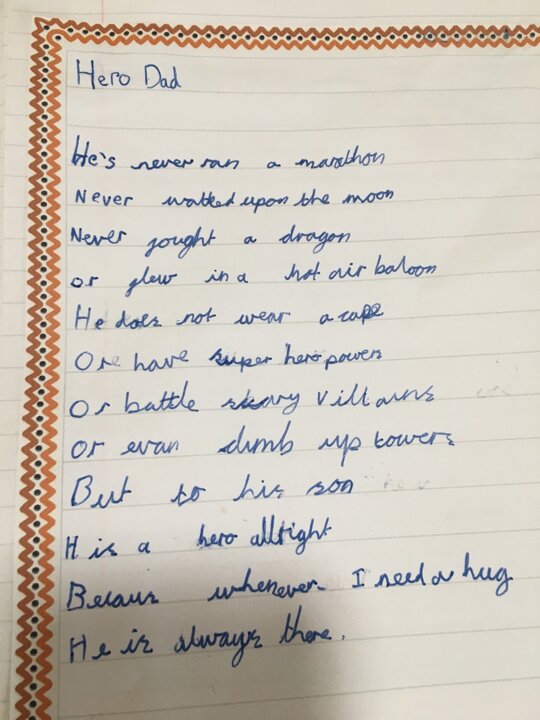 Hero Dad
He's never ran a marathon
Never walked upon the moon
Never fought a dragon
or flew in a hot air baloon
He does not wear a cape
Ore have super hero powers
Or battle skary villains
Or evan climb up towers
But to his son
H is a hero allright
Becaus whenever I need a hug
He is always there.